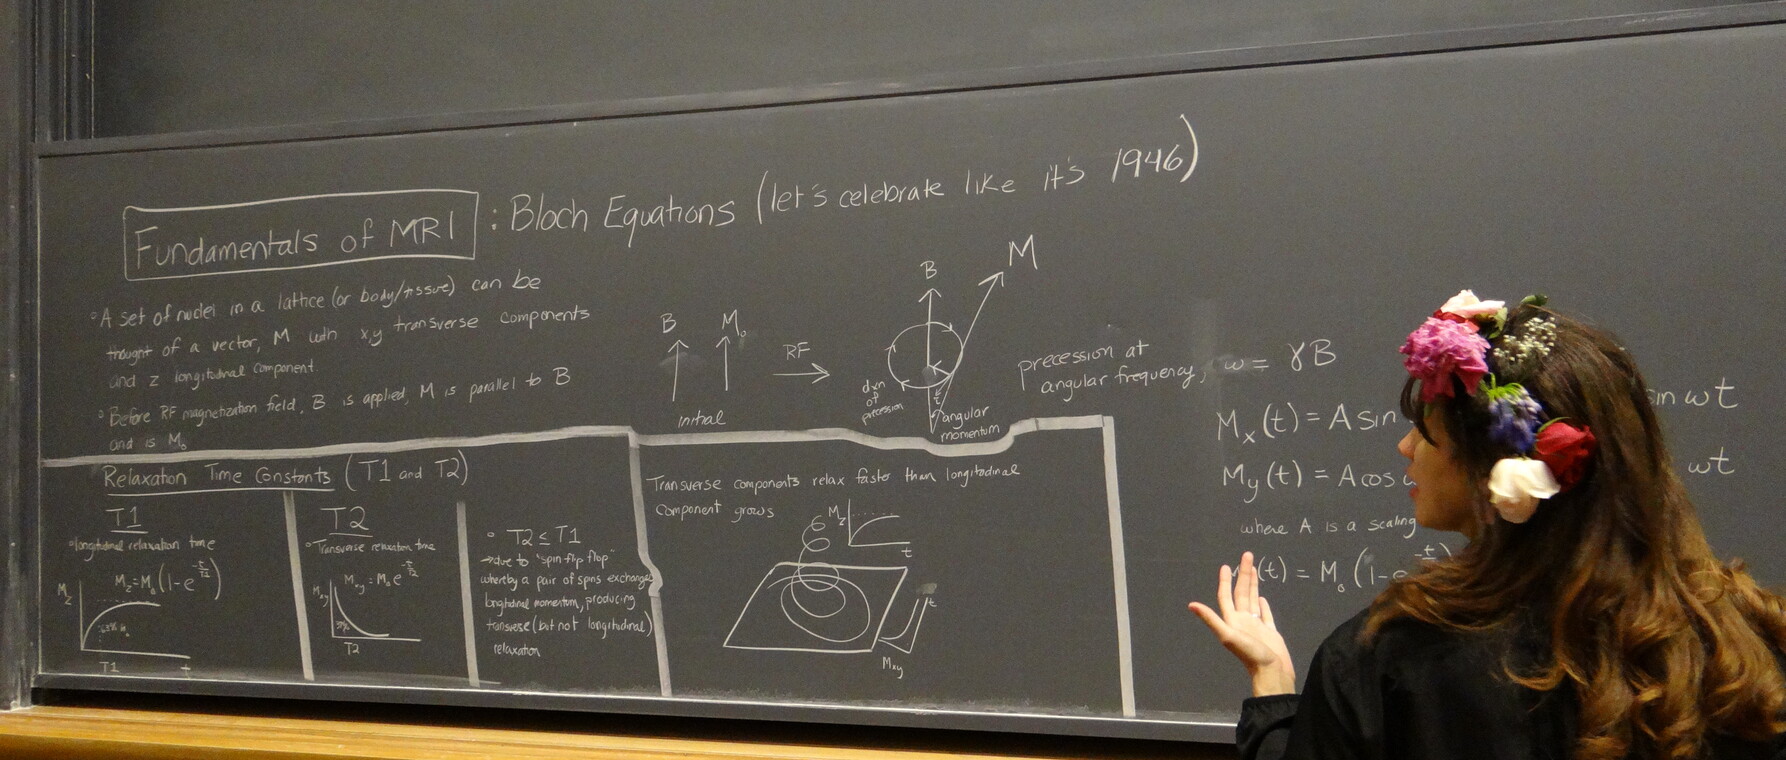 Fundamentals of MRI : Bloch Equations (let's celebrate like it's 1946)
° A set of nuclei in a lattice (or body/tissue) can be
thought of a vector, M with x,y transverse components
and z longitudinal component.
° Before RF magnetization field, B is applied, M is parallel to B
and is M₀
B M₀
RF
initial
B
M
dxn
of
precession
angular
momentum
precession at
angular frequency, ω = γB
Mₓ(t) = A sin
sin ωt
My(t) = A cos ω
ωt
where A is a scaling
(t) = M₀ (1-e^-t/
Relaxation Time Constants (T1 and T2)
T1
° longitudinal relaxation time
Mz = M₀ (1-e^-t/T1)
Mz
63% M₀
T1 t
T2
° Transverse relaxation time
Mxy = M₀ e^-t/T2
Mxy
37%
T2
° T2 ≤ T1
→ due to "spin flip flop"
whereby a pair of spins exchanges
longitudinal momentum, producing
transverse (but not longitudinal)
relaxation
Transverse components relax faster than longitudinal
component grows
Mz
t
t
Mxy